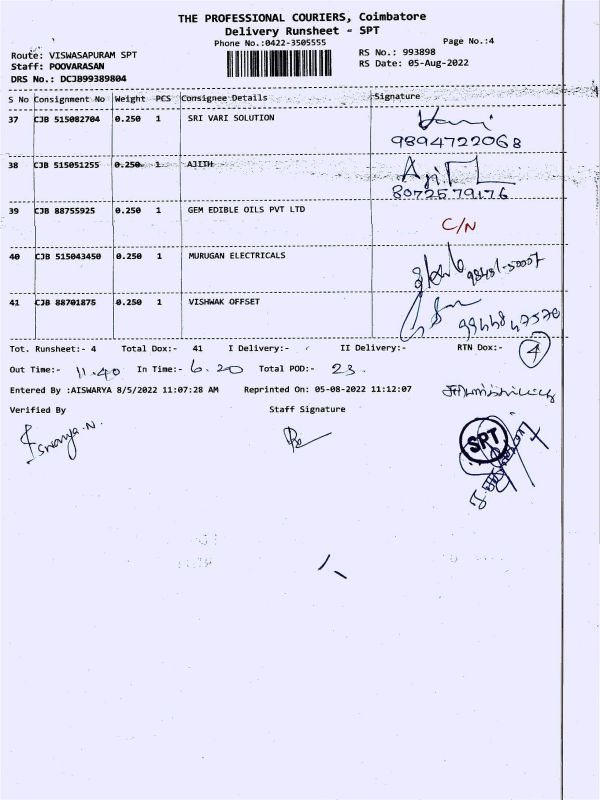 THE PROFESSIONAL COURIERS, Coimbatore
Delivery Runsheet - SPT
Phone No.:0422-3505555
Page No.:4
Route: VISWASAPURAM SPT
RS No.: 993898
Staff: POOVARASAN
RS Date: 05-Aug-2022
DRS No.: DCJB99389804
S No Consignment No Weight PCS Consignee Details Signature
37 CJB 515082704 0.250 1 SRI VARI SOLUTION
9894722068
38 CJB 515051255 0.250 1 AJITH
8072579176
39 CJB 88755925 0.250 1 GEM EDIBLE OILS PVT LTD C/N
40 CJB 515043450 0.250 1 MURUGAN ELECTRICALS
41 CJB 88701875 0.250 1 VISHWAK OFFSET
Tot. Runsheet:- 4 Total Dox:- 41 I Delivery:- II Delivery:- RTN Dox:- 4
Out Time:- 11.40 In Time:- 6.20 Total POD:- 23.
Entered By :AISWARYA 8/5/2022 11:07:28 AM Reprinted On: 05-08-2022 11:12:07
Verified By Staff Signature
SPT